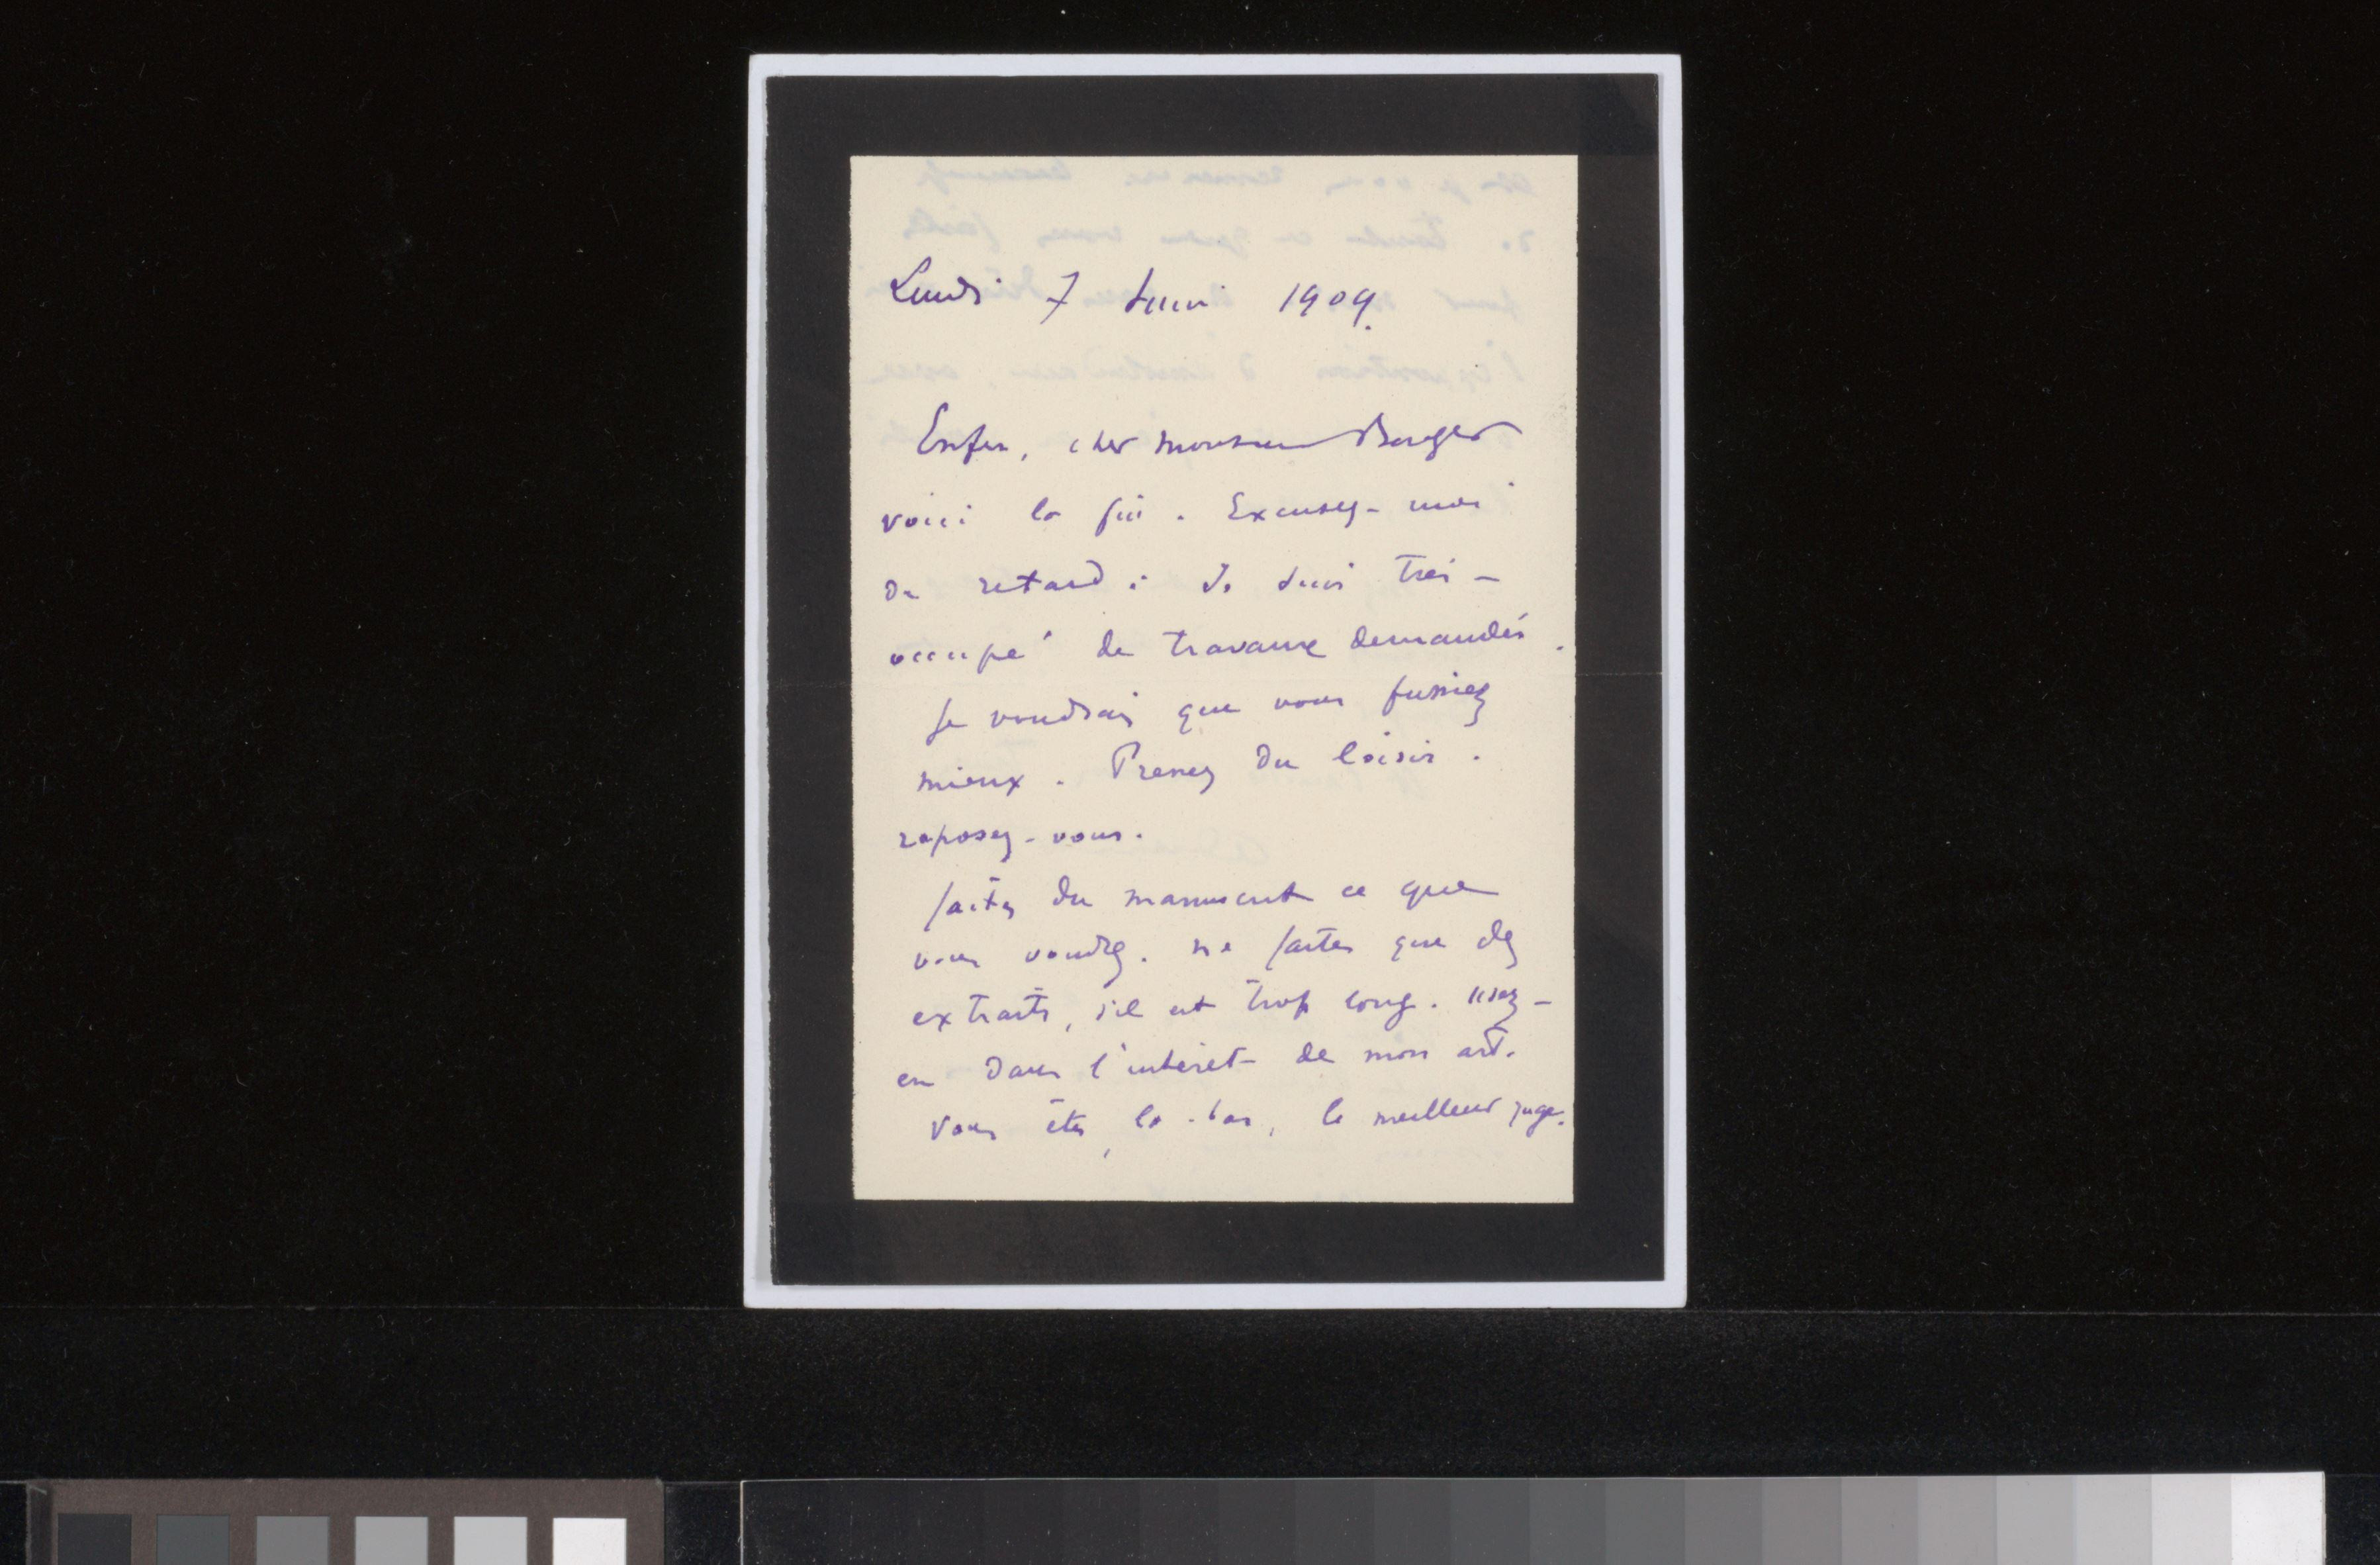 Lundi 7 Juin 1909.
Enfin, cher monsieur Bonger
voici la fin. Excusez-moi
du retard : Je suis très-
occupé de travaux demandés.
Je voudrais que vous fussiez
mieux. Prenez du loisir.
reposez-vous.
faites du manuscrit ce que
vous voudrez. ne faites que des
extraits, s'il est trop long. Usez-
en dans l'intérêt de mon art.
Vous êtes, là-bas, le meilleur juge.